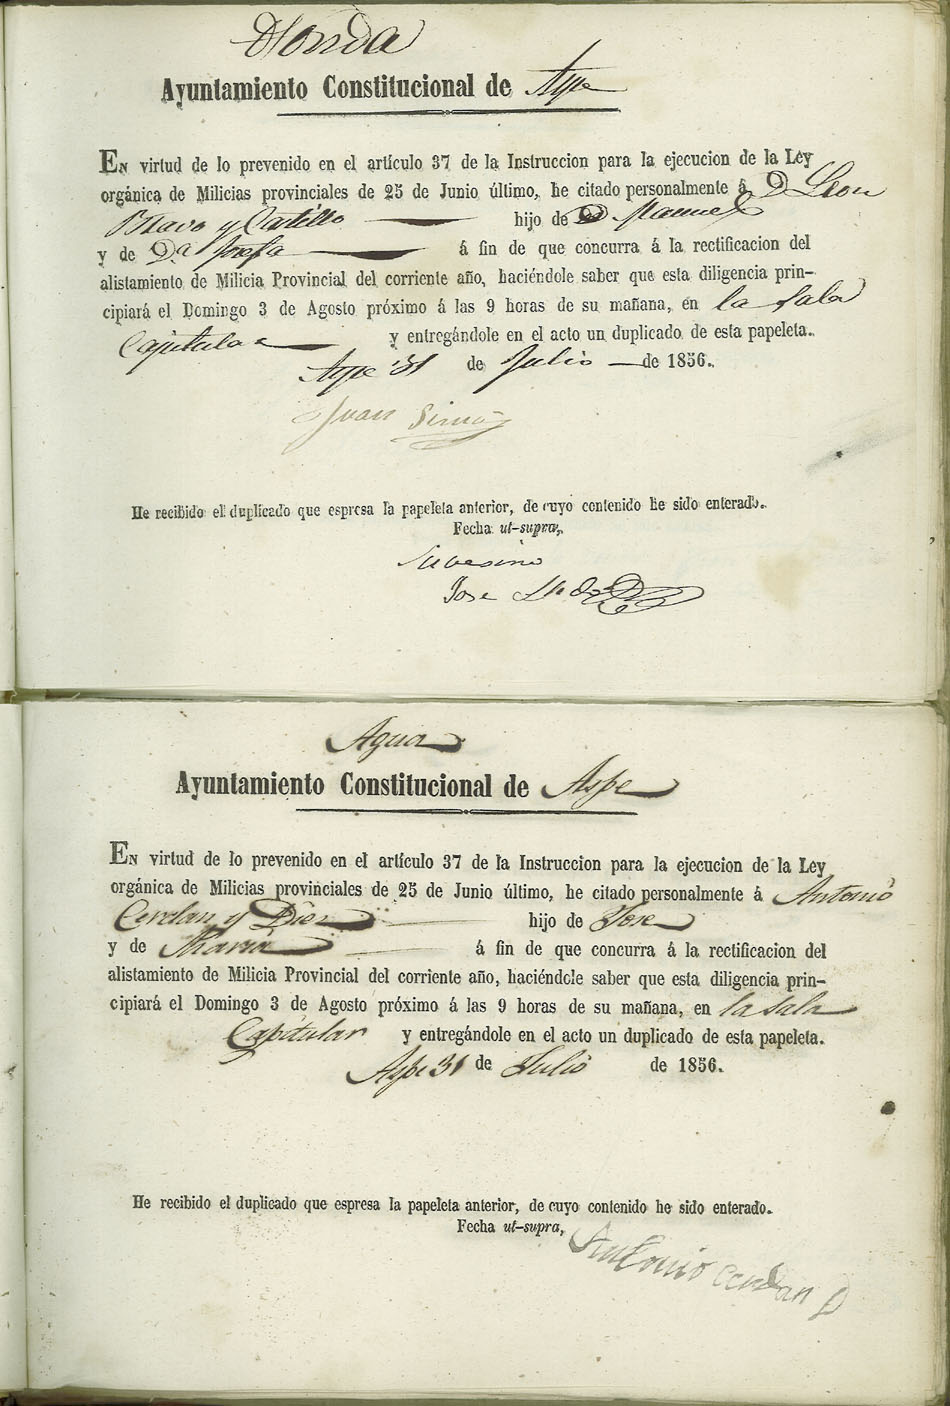 Honda
Ayuntamiento Constitucional de Aspe
En virtud de lo prevenido en el artículo 37 de la Instruccion para la ejecucion de la Ley
orgánica de Milicias provinciales de 25 de Junio último, he citado personalmente á D Leon
Bravo y Castillo hijo de D Manuel
y de D.a Josefa á fin de que concurra á la rectificacion del
alistamiento de Milicia Provincial del corriente año, haciéndole saber que esta diligencia prin-
cipiará el Domingo 3 de Agosto próximo á las 9 horas de su mañana, en la Sala
Capitular y entregándole en el acto un duplicado de esta papeleta.
Aspe 31 de Julio de 1856.
Juan
He recibido el duplicado que espresa la papeleta anterior, de cuyo contenido he sido enterado.
Fecha ut-supra,
Su vecino
Jose
Agua
Ayuntamiento Constitucional de Aspe
En virtud de lo prevenido en el artículo 37 de la Instruccion para la ejecucion de la Ley
orgánica de Milicias provinciales de 25 de Junio último, he citado personalmente á Antonio
Cerdan y Diez hijo de Jose
y de Maria á fin de que concurra á la rectificacion del
alistamiento de Milicia Provincial del corriente año, haciéndole saber que esta diligencia prin-
cipiará el Domingo 3 de Agosto próximo á las 9 horas de su mañana, en la Sala
Capitular y entregándole en el acto un duplicado de esta papeleta.
Aspe 31 de Julio de 1856.
He recibido el duplicado que espresa la papeleta anterior, de cuyo contenido he sido enterado.
Fecha ut-supra,
Antonio cerdan D